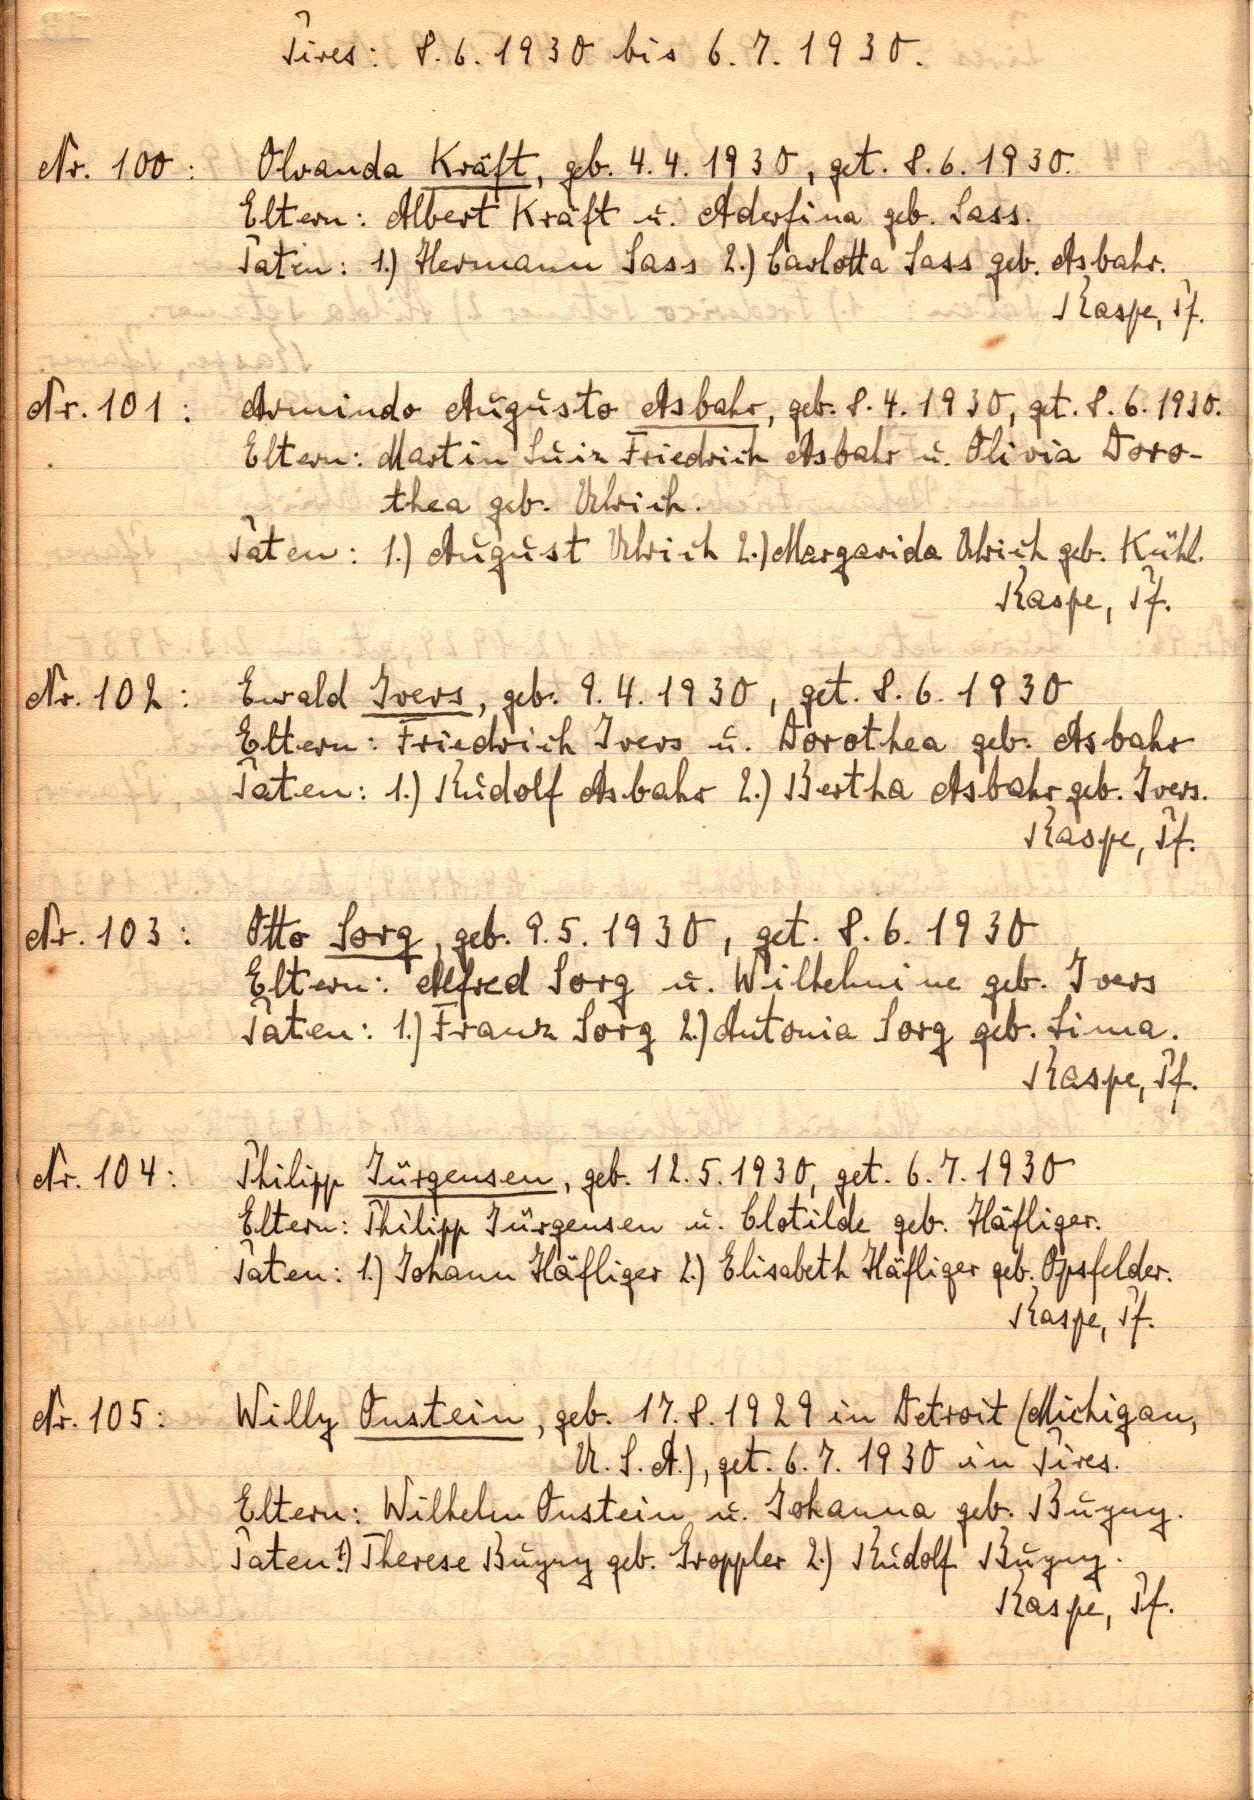 Pires: 8.6.1930 bis 6.7.1930.
Nr. 100: Olvanda Kräft, geb. 4.4.1930, get. 8.6.1930.
Eltern: Albert Kräft u. Aderfina geb. Sass.
Paten: 1.) Hermann Sass 2.) Carlotta Sass geb. Asbahr.
Raspe, Pf.
Nr. 101: Armindo Augusto Asbahr, geb. 8.4.1930, get. 8.6.1930.
Eltern: Martin Luiz Friedrich Asbahr u. Olivia Doro-
thea geb. Ulrich.
Paten: 1.) August Ulrich 2.) Margarida Ulrich geb. Kühl.
Raspe, Pf.
Nr. 102: Ewald Ivers, geb. 9.4.1930, get. 8.6.1930
Eltern: Friedrich Ivers u. Dorothea geb. Asbahr
Paten: 1.) Rudolf Asbahr 2.) Bertha Asbahr geb. Ivers.
Raspe, Pf.
Nr. 103: Otto Sorg, geb. 9.5.1930, get. 8.6.1930
Eltern: Alfred Sorg u. Wilhelmine geb. Ivers
Paten: 1.) Franz Sorg 2.) Antonia Sorg geb. Lima.
Raspe, Pf.
Nr. 104: Philipp Jürgensen, geb. 12.5.1930, get. 6.7.1930
Eltern: Philipp Jürgensen u. Clotilde geb. Häfliger.
Paten: 1.) Johann Häfliger 2.) Elisabeth Häfliger geb. Opsfelder.
Raspe, Pf.
Nr. 105: Willy Onstein, geb. 17.8.1929 in Detroit (Michigan,
U.S.A.), get. 6.7.1930 in Pires.
Eltern: Wilhelm Onstein u. Johanna geb. Buyny.
Paten: 1.) Therese Buyny geb. Groppler 2.) Rudolf Buyny.
Raspe, Pf.